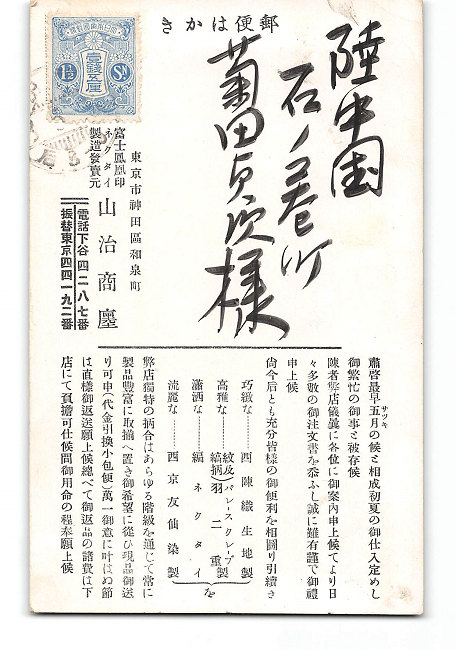 郵便はかき
壹錢五厘
1½ Sn
陸中国
石ノ巻町
菊田貞次様
東京市神田區和泉町
富士鳳凰印
ネクタイ
製造發賣元
山治商店
電話下谷四二八七番
振替東京四四一九二番
肅啓最早五月の候と相成初夏の御仕入定めし
サツキ
御繁忙の御事と被存候
陳者弊店儀曩に各位に御案内申上候てより日
々多數の御注文書を忝ふし誠に難有謹で御禮
申上候
尙今后とも充分皆樣の御便利を相圖り引續き
巧緻な……西陣織生地製
高雅な……紋及縞柄)パレースクレープ羽二重製
瀟洒な……縞ネクタイ
流麗な……西京友仙染製
を
弊店獨特の柄合はあらゆる階級を通じて常に
製品豐富に取揃へ置き御希望に從ひ現品御送
り可申(代金引換小包便)萬一御意に叶はぬ節
は直樣御返送願上候總べて御返品の諸費は下
店にて負擔可仕候間御用命の程奉願上候